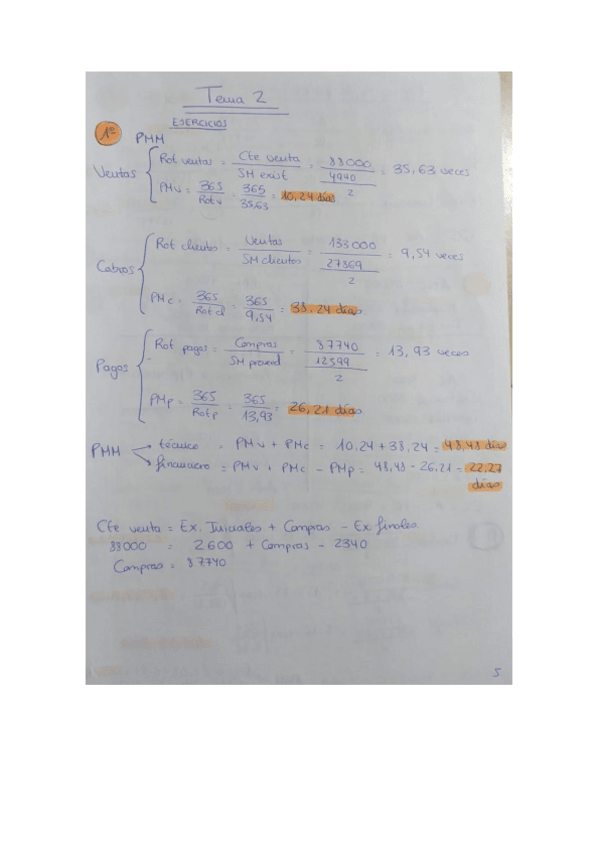 Tema 2
EJERCICIOS
1º PMM
Ventas
Rot ventas = Cte venta / SM exist = 88000 / 4940 / 2 = 35,63 veces
PMv = 365 / Rot v = 365 / 35,63 = 10,24 días
Cobros
Rot clientes = Ventas / SM clientes = 133000 / 27869 / 2 = 9,54 veces
PMc = 365 / Rot cl = 365 / 9,54 = 38,24 días
Pagos
Rot pagos = Compras / SM proveed = 87740 / 12599 / 2 = 13,93 veces
PMp = 365 / Rot p = 365 / 13,93 = 26,21 días
PMM
técnico = PMv + PMc = 10,24 + 38,24 = 48,48 días
financiero = PMv + PMc - PMp = 48,48 - 26,21 = 22,27 días
Cte venta = Ex. Iniciales + Compras - Ex finales
88000 = 2600 + Compras - 2340
Compras = 87740
5